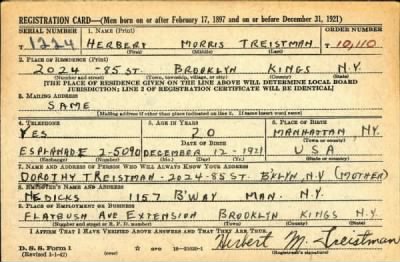 REGISTRATION CARD—(Men born on or after February 17, 1897 and on or before December 31, 1921)
SERIAL NUMBER 1. NAME (Print) ORDER NUMBER
T 1224 HERBERT MORRIS TREISTMAN T 10,110
(First) (Middle) (Last)
2. PLACE OF RESIDENCE (Print)
2024 - 85 ST. BROOKLYN KINGS N.Y.
(Number and street) (Town, township, village, or city) (County) (State)
[THE PLACE OF RESIDENCE GIVEN ON THE LINE ABOVE WILL DETERMINE LOCAL BOARD
JURISDICTION; LINE 2 OF REGISTRATION CERTIFICATE WILL BE IDENTICAL]
3. MAILING ADDRESS
SAME
[Mailing address if other than place indicated on line 2. If same insert word same]
4. TELEPHONE 5. AGE IN YEARS 6. PLACE OF BIRTH
YES 20 MANHATTAN N.Y.
DATE OF BIRTH (Town or county)
ESPLANADE 2-5090 DECEMBER 12 - 1921 USA
(Exchange) (Number) (Mo.) (Day) (Yr.) (State or country)
7. NAME AND ADDRESS OF PERSON WHO WILL ALWAYS KNOW YOUR ADDRESS
DOROTHY TREISTMAN - 2024-85 ST. B'KLYN, N.Y (MOTHER)
8. EMPLOYER'S NAME AND ADDRESS
NEDICKS 1157 B'WAY MAN. N.Y.
9. PLACE OF EMPLOYMENT OR BUSINESS
FLATBUSH AVE EXTENSION BROOKLYN KINGS N.Y.
(Number and street or R. F. D. number) (Town) (County) (State)
I AFFIRM THAT I HAVE VERIFIED ABOVE ANSWERS AND THAT THEY ARE TRUE.
D. S. S. Form 1
(Revised 1-1-42) (over)
Herbert M. Treistman